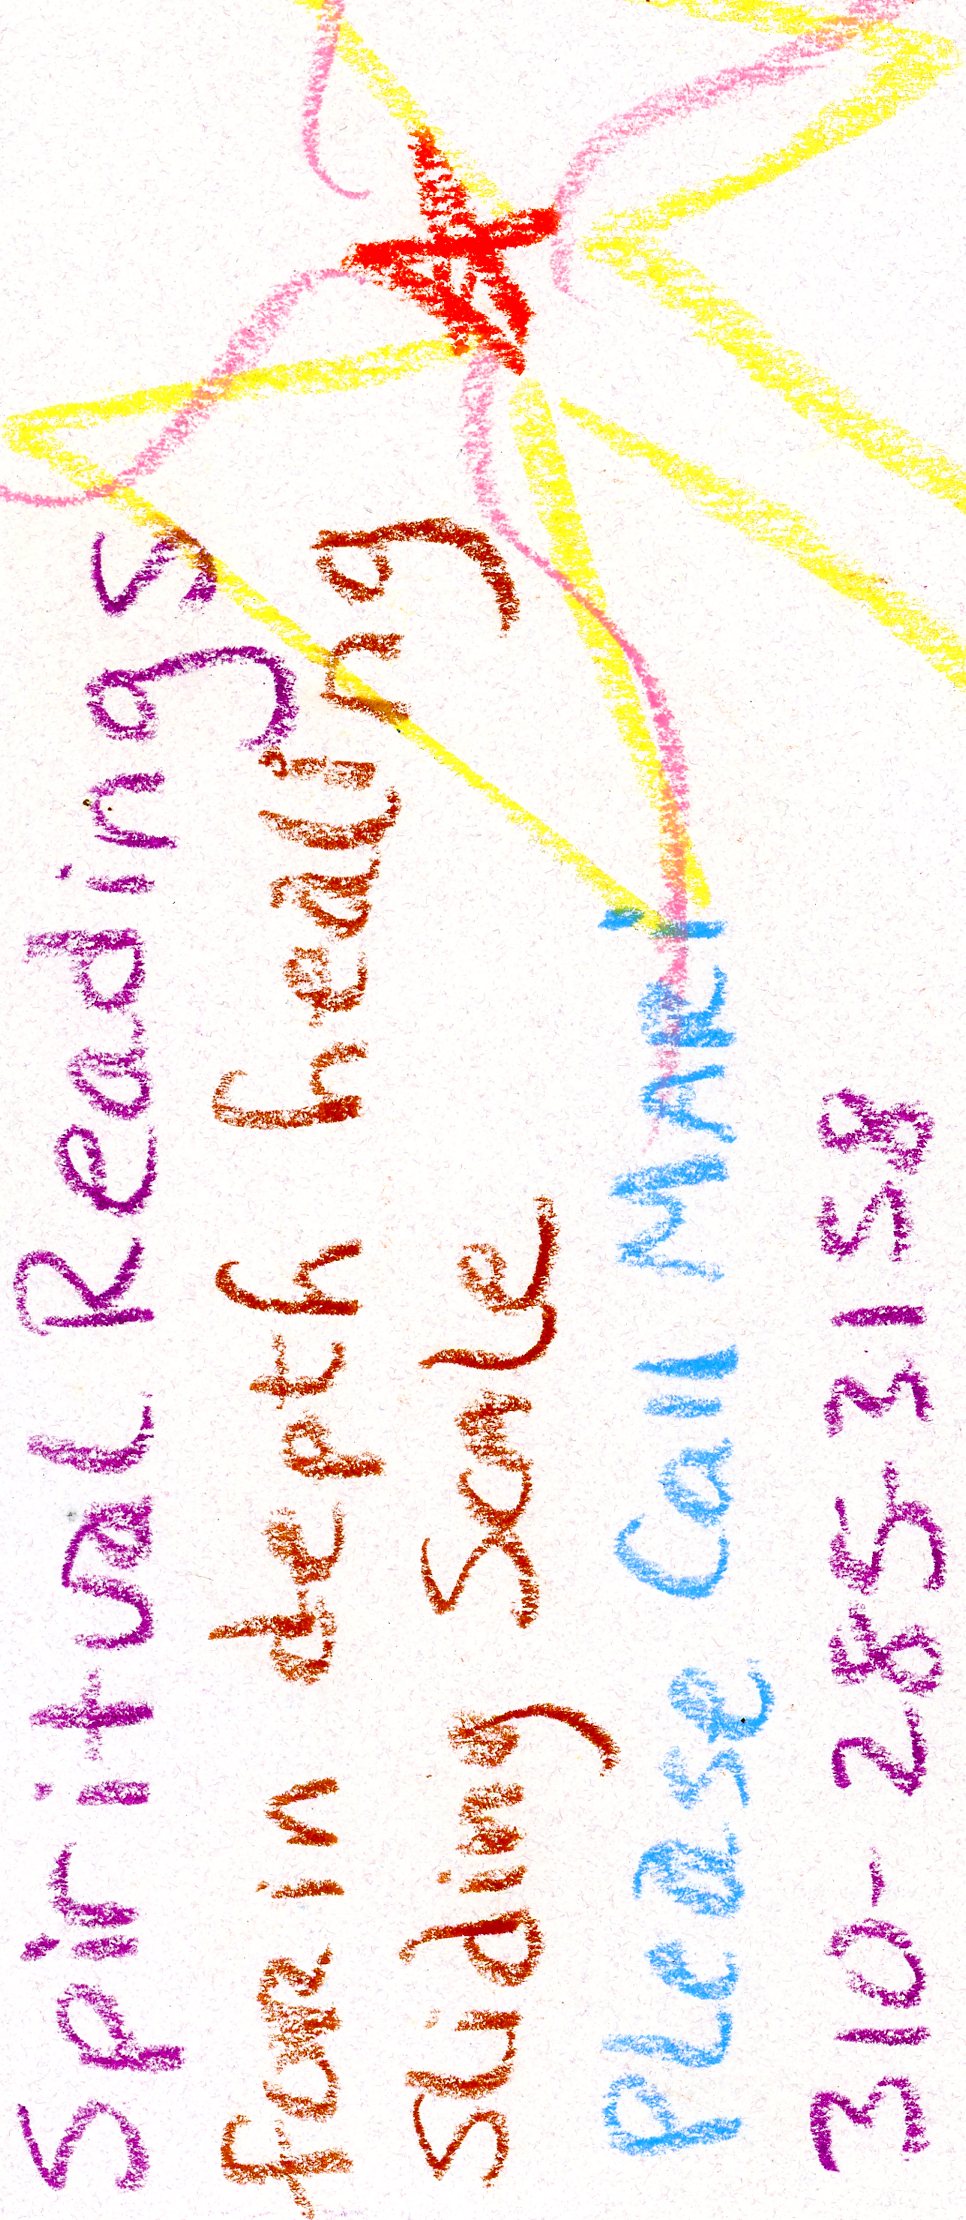 Spiritual Readings
for in depth healing
Sliding Scale
Please Call MARI
310-285-3158